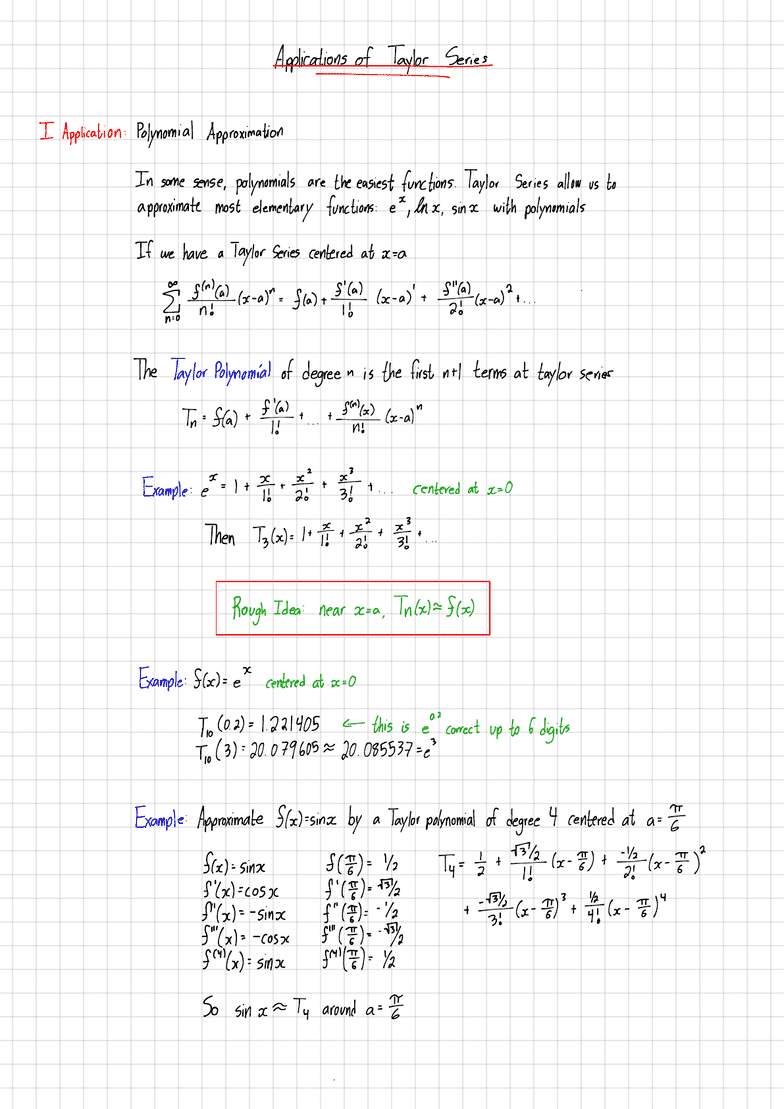 Applications of Taylor Series
I Application: Polynomial Approximation
In some sense, polynomials are the easiest functions. Taylor Series allow us to
approximate most elementary functions: e^x, ln x, sin x with polynomials
If we have a Taylor Series centered at x=a
∑_{n=0}^{∞} f^(n)(a)/n! (x-a)^n = f(a) + f'(a)/1! (x-a)' + f''(a)/2! (x-a)^2 + ...
The Taylor Polynomial of degree n is the first n+1 terms at taylor series
Tn = f(a) + f'(a)/1! + ... + f^(n)(x)/n! (x-a)^n
Example: e^x = 1 + x/1! + x^2/2! + x^3/3! + ... centered at x=0
Then T_3(x) = 1 + x/1! + x^2/2! + x^3/3! + ...
Rough Idea: near x=a, Tn(x) ≈ f(x)
Example: f(x) = e^x centered at x=0
T_10(0.2) = 1.221405 ← this is e^0.2 correct up to 6 digits
T_10(3) = 20.079605 ≈ 20.085537 = e^3
Example: Approximate f(x)=sinx by a Taylor polynomial of degree 4 centered at a = π/6
f(x) = sinx f(π/6) = 1/2 T_4 = 1/2 + √3/2/1! (x - π/6) + -1/2/2! (x - π/6)^2
f'(x) = cosx f'(π/6) = √3/2
f''(x) = -sinx f''(π/6) = -1/2 + -√3/2/3! (x - π/6)^3 + 1/2/4! (x - π/6)^4
f'''(x) = -cosx f'''(π/6) = -√3/2
f^(4)(x) = sinx f^(4)(π/6) = 1/2
So sin x ≈ T_4 around a = π/6